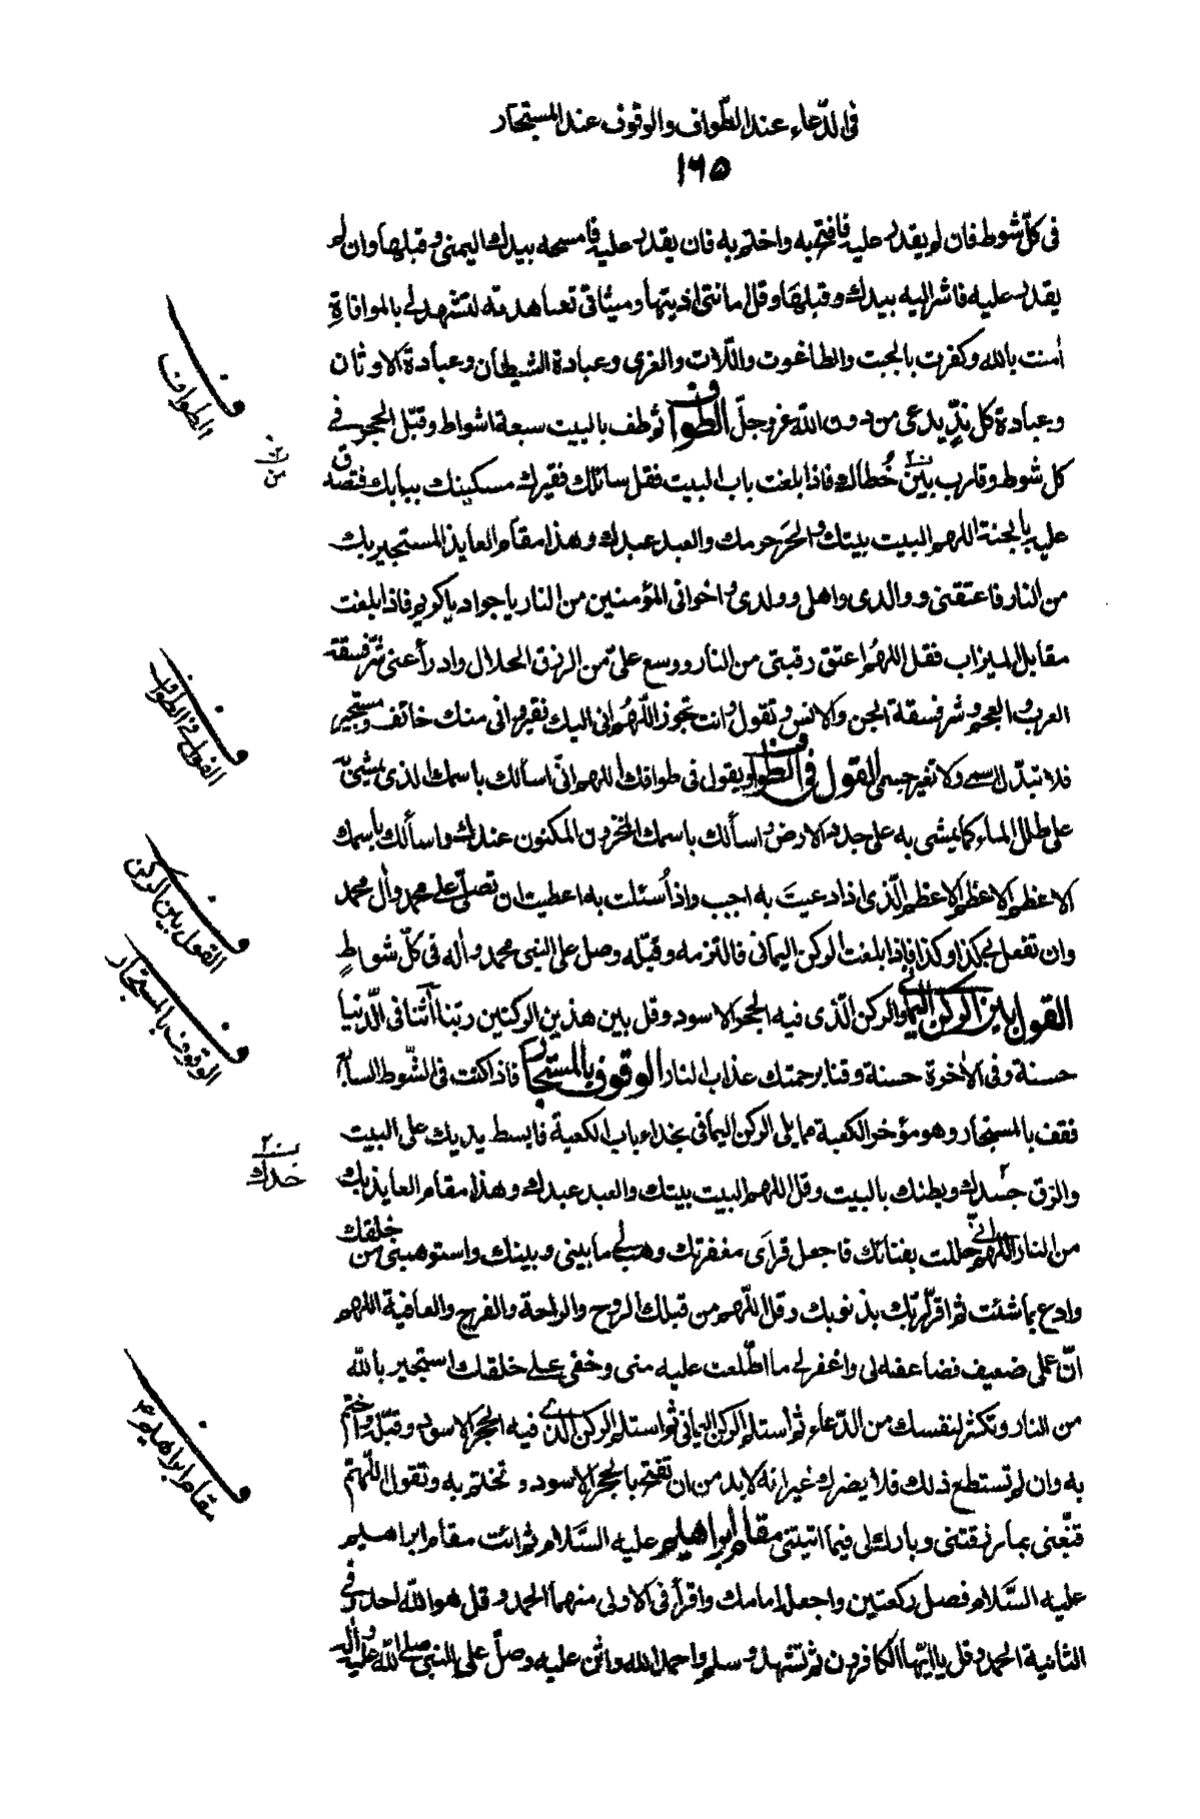 فى الدّعاء عند الطّواف والوقوف عند المستجار
١٦٥
فى كلّ شوط فان لم يقدر عليه فافتح به واختم به فان يقدر عليه فامسحه بيدك اليمنى وقبلها وان لم
يقدر عليه فاشر اليه بيدك وقبلها وقل امانتى اديتها وميثاقى تعاهدته لتشهد لى بالموافاة
امنت بالله وكفرت بالجبت والطاغوت واللّات والعزى وعبادة الشيطان وعبادة الاوثان
وعبادة كل ندّ يدعى من دون الله عزوجلّ الطواف ثم طف بالبيت سبعة اشواط وقبّل الحجر فى
كل شوط وقارب بين خُطاك فاذا بلغت باب البيت فقل سائلك فقيرك مسكينك ببابك فتصدق
عليه بالجنة اللهم البيت بيتك والحرم حرمك والعبد عبدك وهذا مقام العايذ المستجير بك
من النار فاعتقنى ووالدى واهلى وولدى واخوانى المؤمنين من النار يا جواد يا كريم فاذا بلغت
مقابل الميزاب فقل اللهم اعتق رقبتى من النار ووسع علىّ من الرزق الحلال وادرأ عنى شرّ فسقة
العرب والعجم وشر فسقة الجن والانس وتقول وانت تجوز اللّهم انى اليك فقير وانى منك خائف ومستجير
فلا تبدّل اسمى ولا تغير جسمى القول فى الطواف ويقول فى طوافك اللهم انّى اسألك باسمك الذى يمشى
على طلل الماء كما يمشى به على جدد الارض واسألك باسمك المخزون المكنون عندك واسألك باسمك
الاعظم الاعظم الاعظم الّذى اذا دعيتَ به اجبت واذا سُئلت به اعطيت ان تصلّى على محمد وآل محمد
وان تفعل بى كذا وكذا فاذا بلغت الركن اليمانى فالتزمه وقبّله وصل على النبى محمد وآله فى كلّ شواطٍ
القول بين الركن اليمانى والركن الّذى فيه الحجر الاسود وقل بين هذين الركنين ربّنا آتنا فى الدّنيا
حسنة وفى الآخرة حسنة وقنا برحمتك عذاب النار الوقوف بالمستجار فاذا كنت فى الشّوط السابع
فقف بالمستجار وهو مؤخر الكعبة مما يلى الركن اليمانى بحذاء باب الكعبة فابسط يديك على البيت
والزق جسدك وبطنك بالبيت وقل اللهم البيت بيتك والعبد عبدك وهذا مقام العايذ بك
من النار اللهم انى حللت بفنائك فاجعل قراى مغفرتك وهب لى ما بينى وبينك واستوهبنى من خلقك
وادع بما شئت ثم اقرّ لربك بذنوبك وقل اللّهم من قبلك الروح والراحة والفرج والعافية اللهم
انّ عملى ضعيف فضاعفه لى واغفر لى ما اطّلعت عليه منى وخفى على خلقك استجير بالله
من النار وتكثر لنفسك من الدّعاء ثم أستلم الركن اليمانى ثم استلم الركن الذى فيه الحجر الاسود وقبّله واختم
به وان لم تستطع ذلك فلا يضرك غير انه لابد من ان تفتح بالحجر الاسود وتختم به وتقول اللّهم
قنّعنى بما رزقتنى وبارك لى فيما اتيتنى مقام ابراهيم عليه السَّلام ثم ائت مقام ابراهيم
عليه السَّلام فصل ركعتين واجعله امامك واقرأ فى الاولى منهما الحمد وقل هو الله احد وفى
الثانية الحمد وقل يا ايّها الكافرون ثم تشهد وسلم واحمد الله واثن عليه وصلّ على النبى صلى الله عليه وآله
الطواف
من
القول فى الطواف
القول بين الركن
الوقوف بالمستجار
خدك
مقام ابراهيم ع